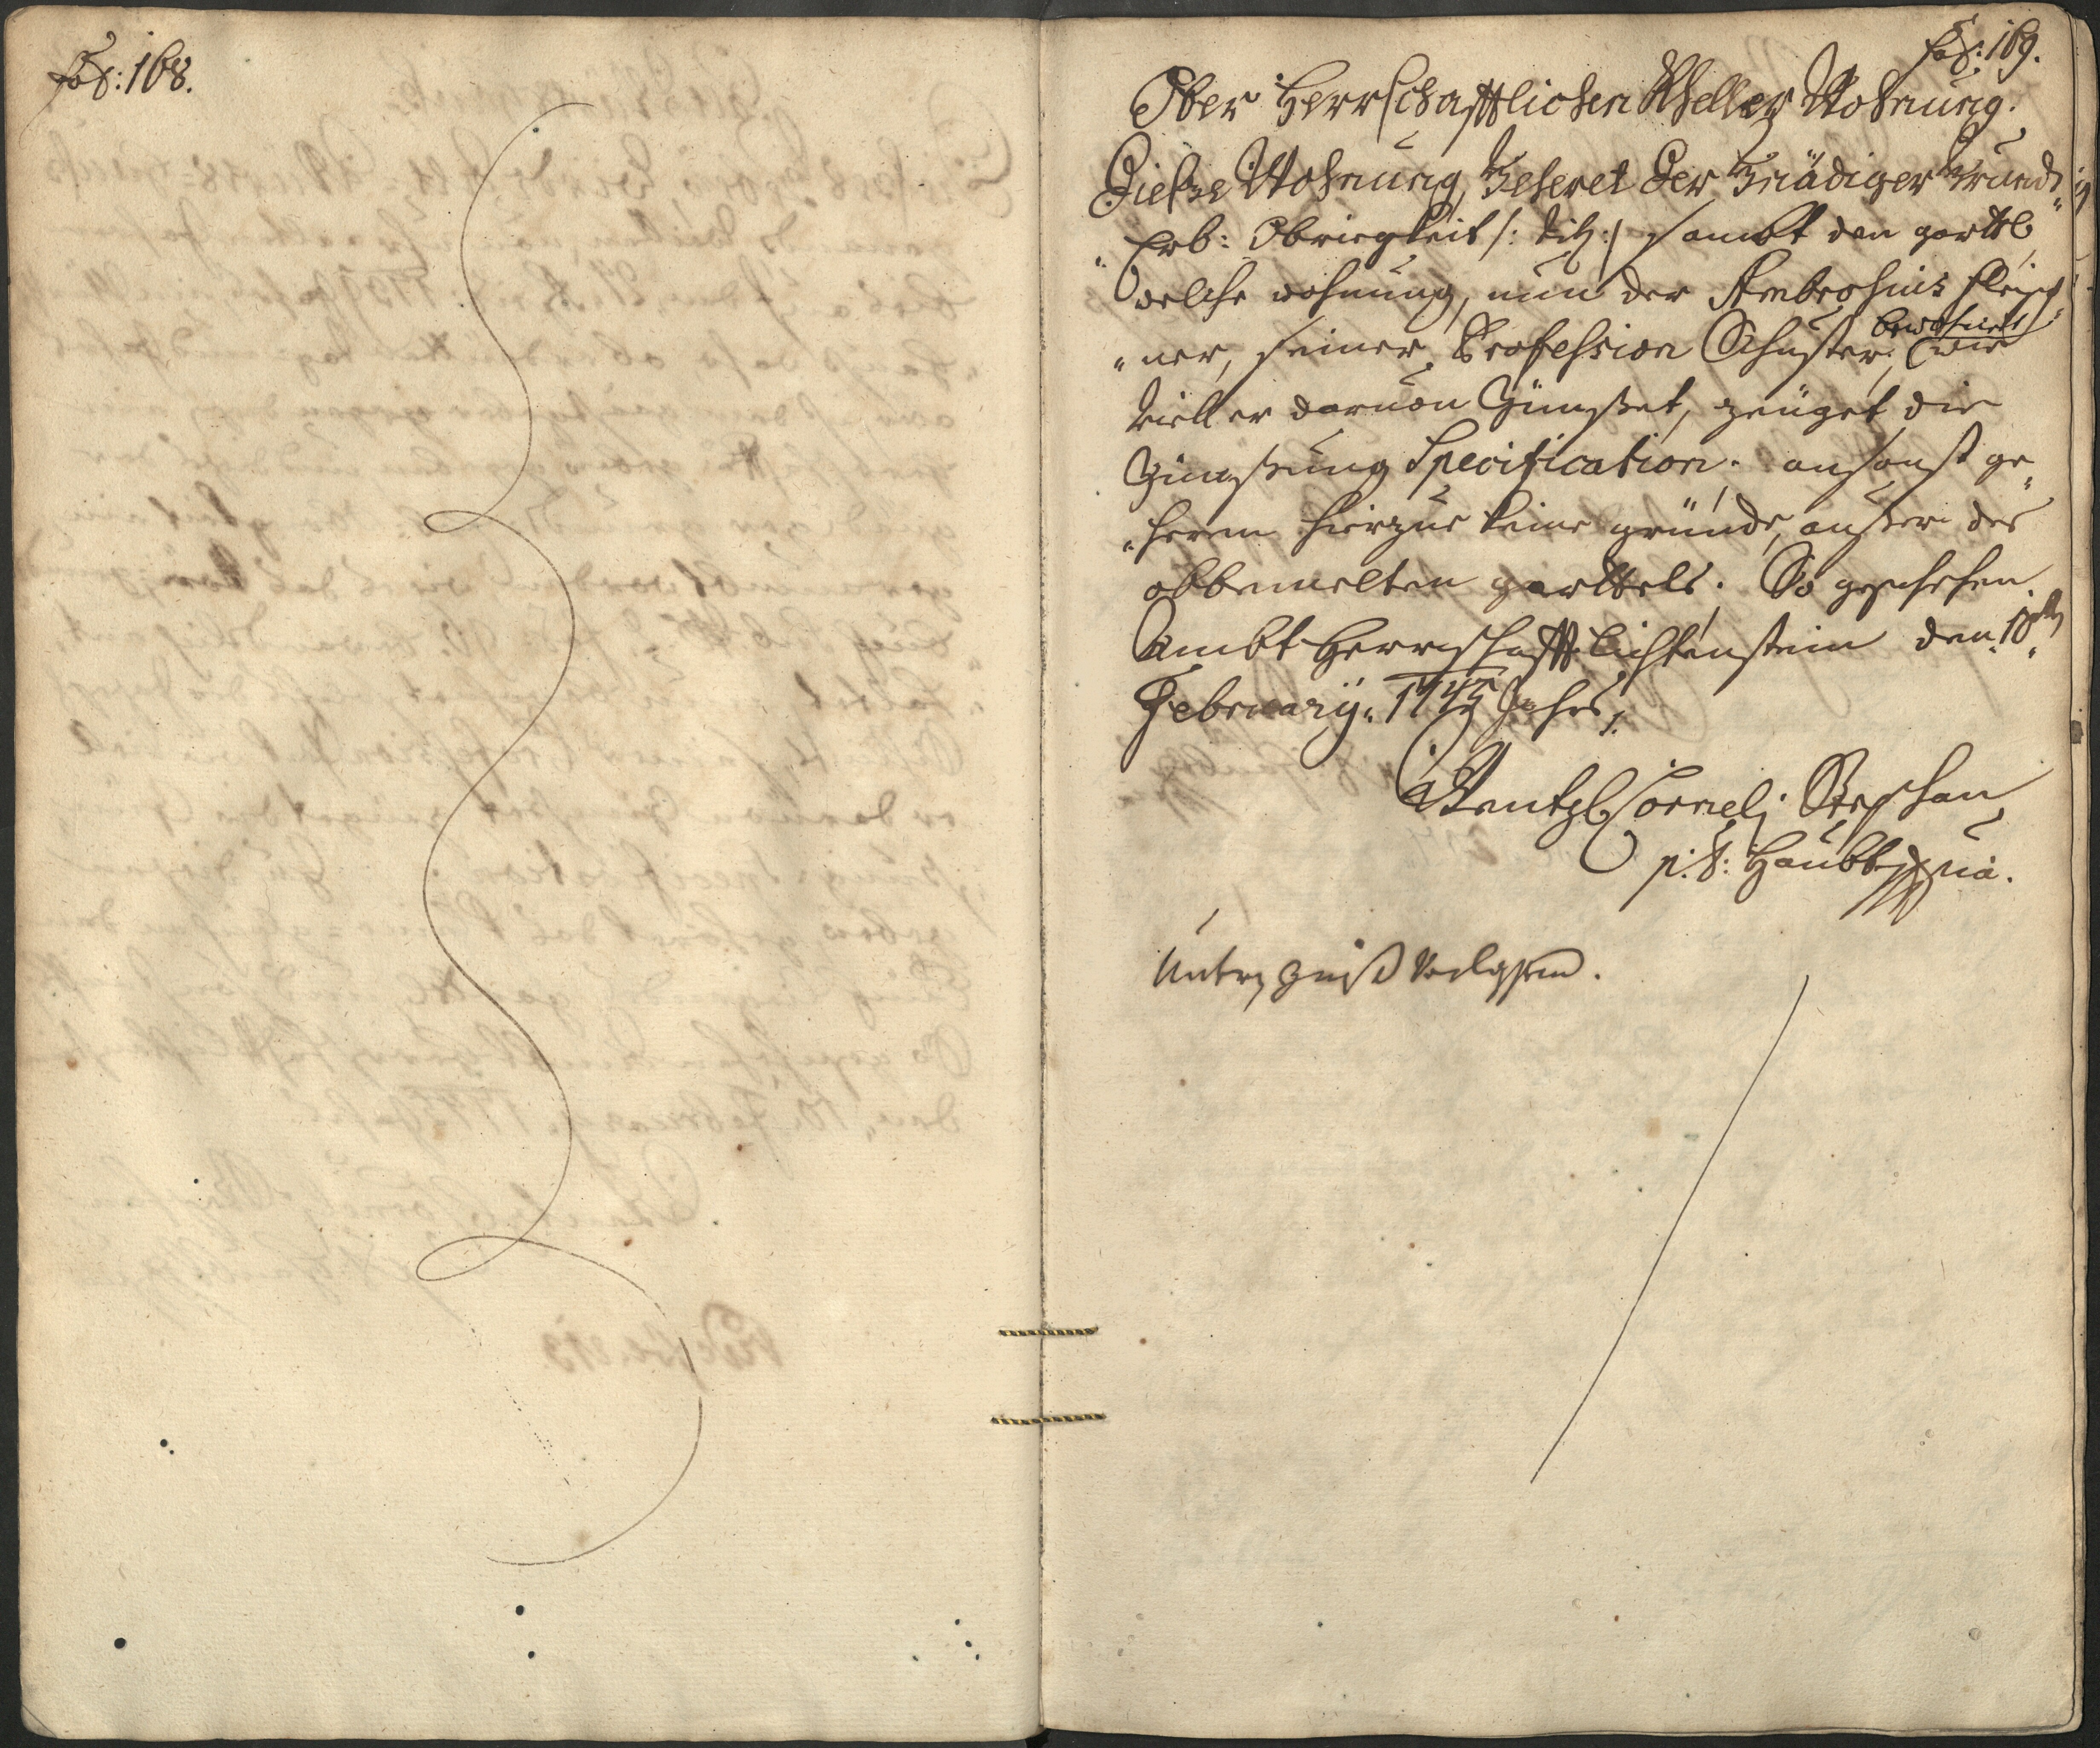 fol: 168.
fol: 169.
Ober Herrschafftlichen Kheller Wohnung.
Diesze Wohnung, Geheret der Gnädiger Grund„
„Erb: Obrigkeit /: tit: / sambt den garttl,
welche wohnung, nun der Ambrosius Fleisch„
„ner, seiner Profession Schuster, bewohnet, wie
viell er darvon Zünsset, zeüget die
Zünssung Specification. ansonst ge„
„heren hierzue keine gründe, ausser des
obbemelten garttels. So geschehen
Ambt Herrschafft Lichtenstein den 18ten
February. 1745 Jahrs.
Wentzl Corneli Stephan
p: t: Haubtm̅a.
Unter